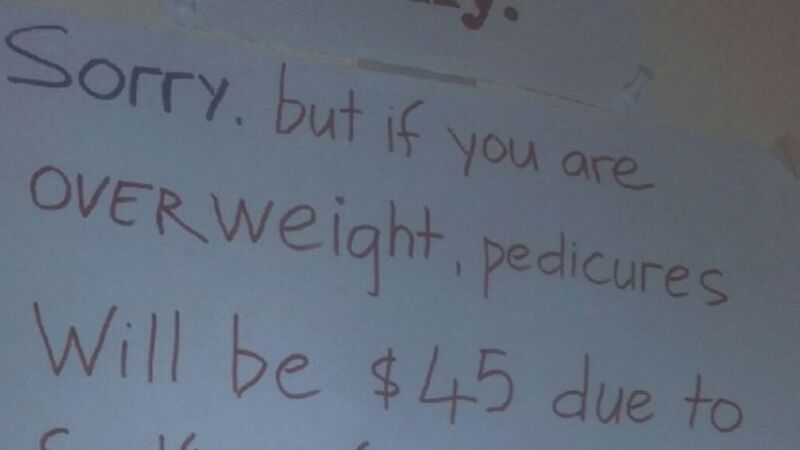 Sorry. but if you are
OVERWeight, pedicures
Will be $45 due to